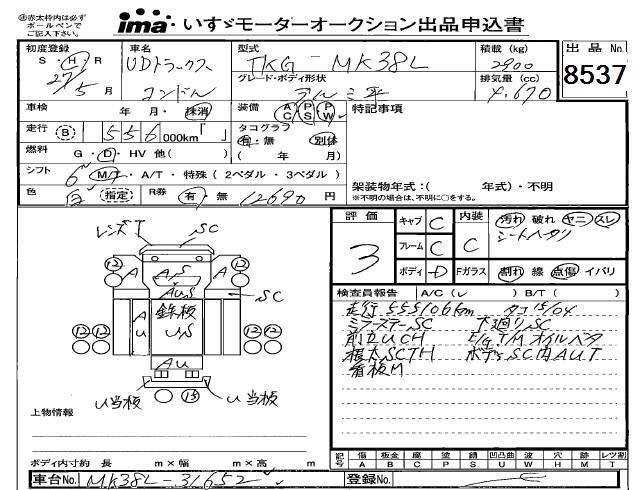 ㊟赤太枠内は必ず
ボールペンで
ご記入下さい。
ima いすゞモーターオークション出品申込書
初度登録 車名 型式 積載 (kg) 出品 No.
S・H・R UDトラックス TKG - MK38L 2900
27年 5月 コンドル グレード・ボディ形状 アルミ平 排気量 (cc) 4,670
8537
車検 年 月・抹消 装備 AC PS PW 特記事項
走行 B 556,000km「 」 タコグラフ
有・無 別体
燃料 G・D・HV 他( ) ( 年 月)
シフト 6 M/T・A/T・特殊 (2ペダル・3ペダル)
色 白 (指定) R券 有・無 12690円
架装物年式:( 年式)・不明
※不明の場合は、不明に○をする。
評価 3
キャブ C 内装 C 汚れ 破れ ヤニ スレ
シートヘタリ
フレーム C
ボディ D Fガラス 割れ 線 点傷 イバリ
レンズT SC
12 A A 12
A,S
A,U,S SC
鉄板
A U U,S
12 12
AU
U当板 13 U当板
検査員報告 A/C (レ) B/T ( )
走行 555106km タコ 15/04
ミラーステーSC 下廻りSC
前立UCH E/G T/M オイルベタ
根太SCTH ボデーSC内AUT
看板M
上物情報
ボディ内寸約 長 m×幅 m×高 m
記号 傷 板金 腐 塗 錆 凹凸曲 W 穴 跡 レツ割
A B C P S U W H M T
車台No. MK38L-31652 登録No.